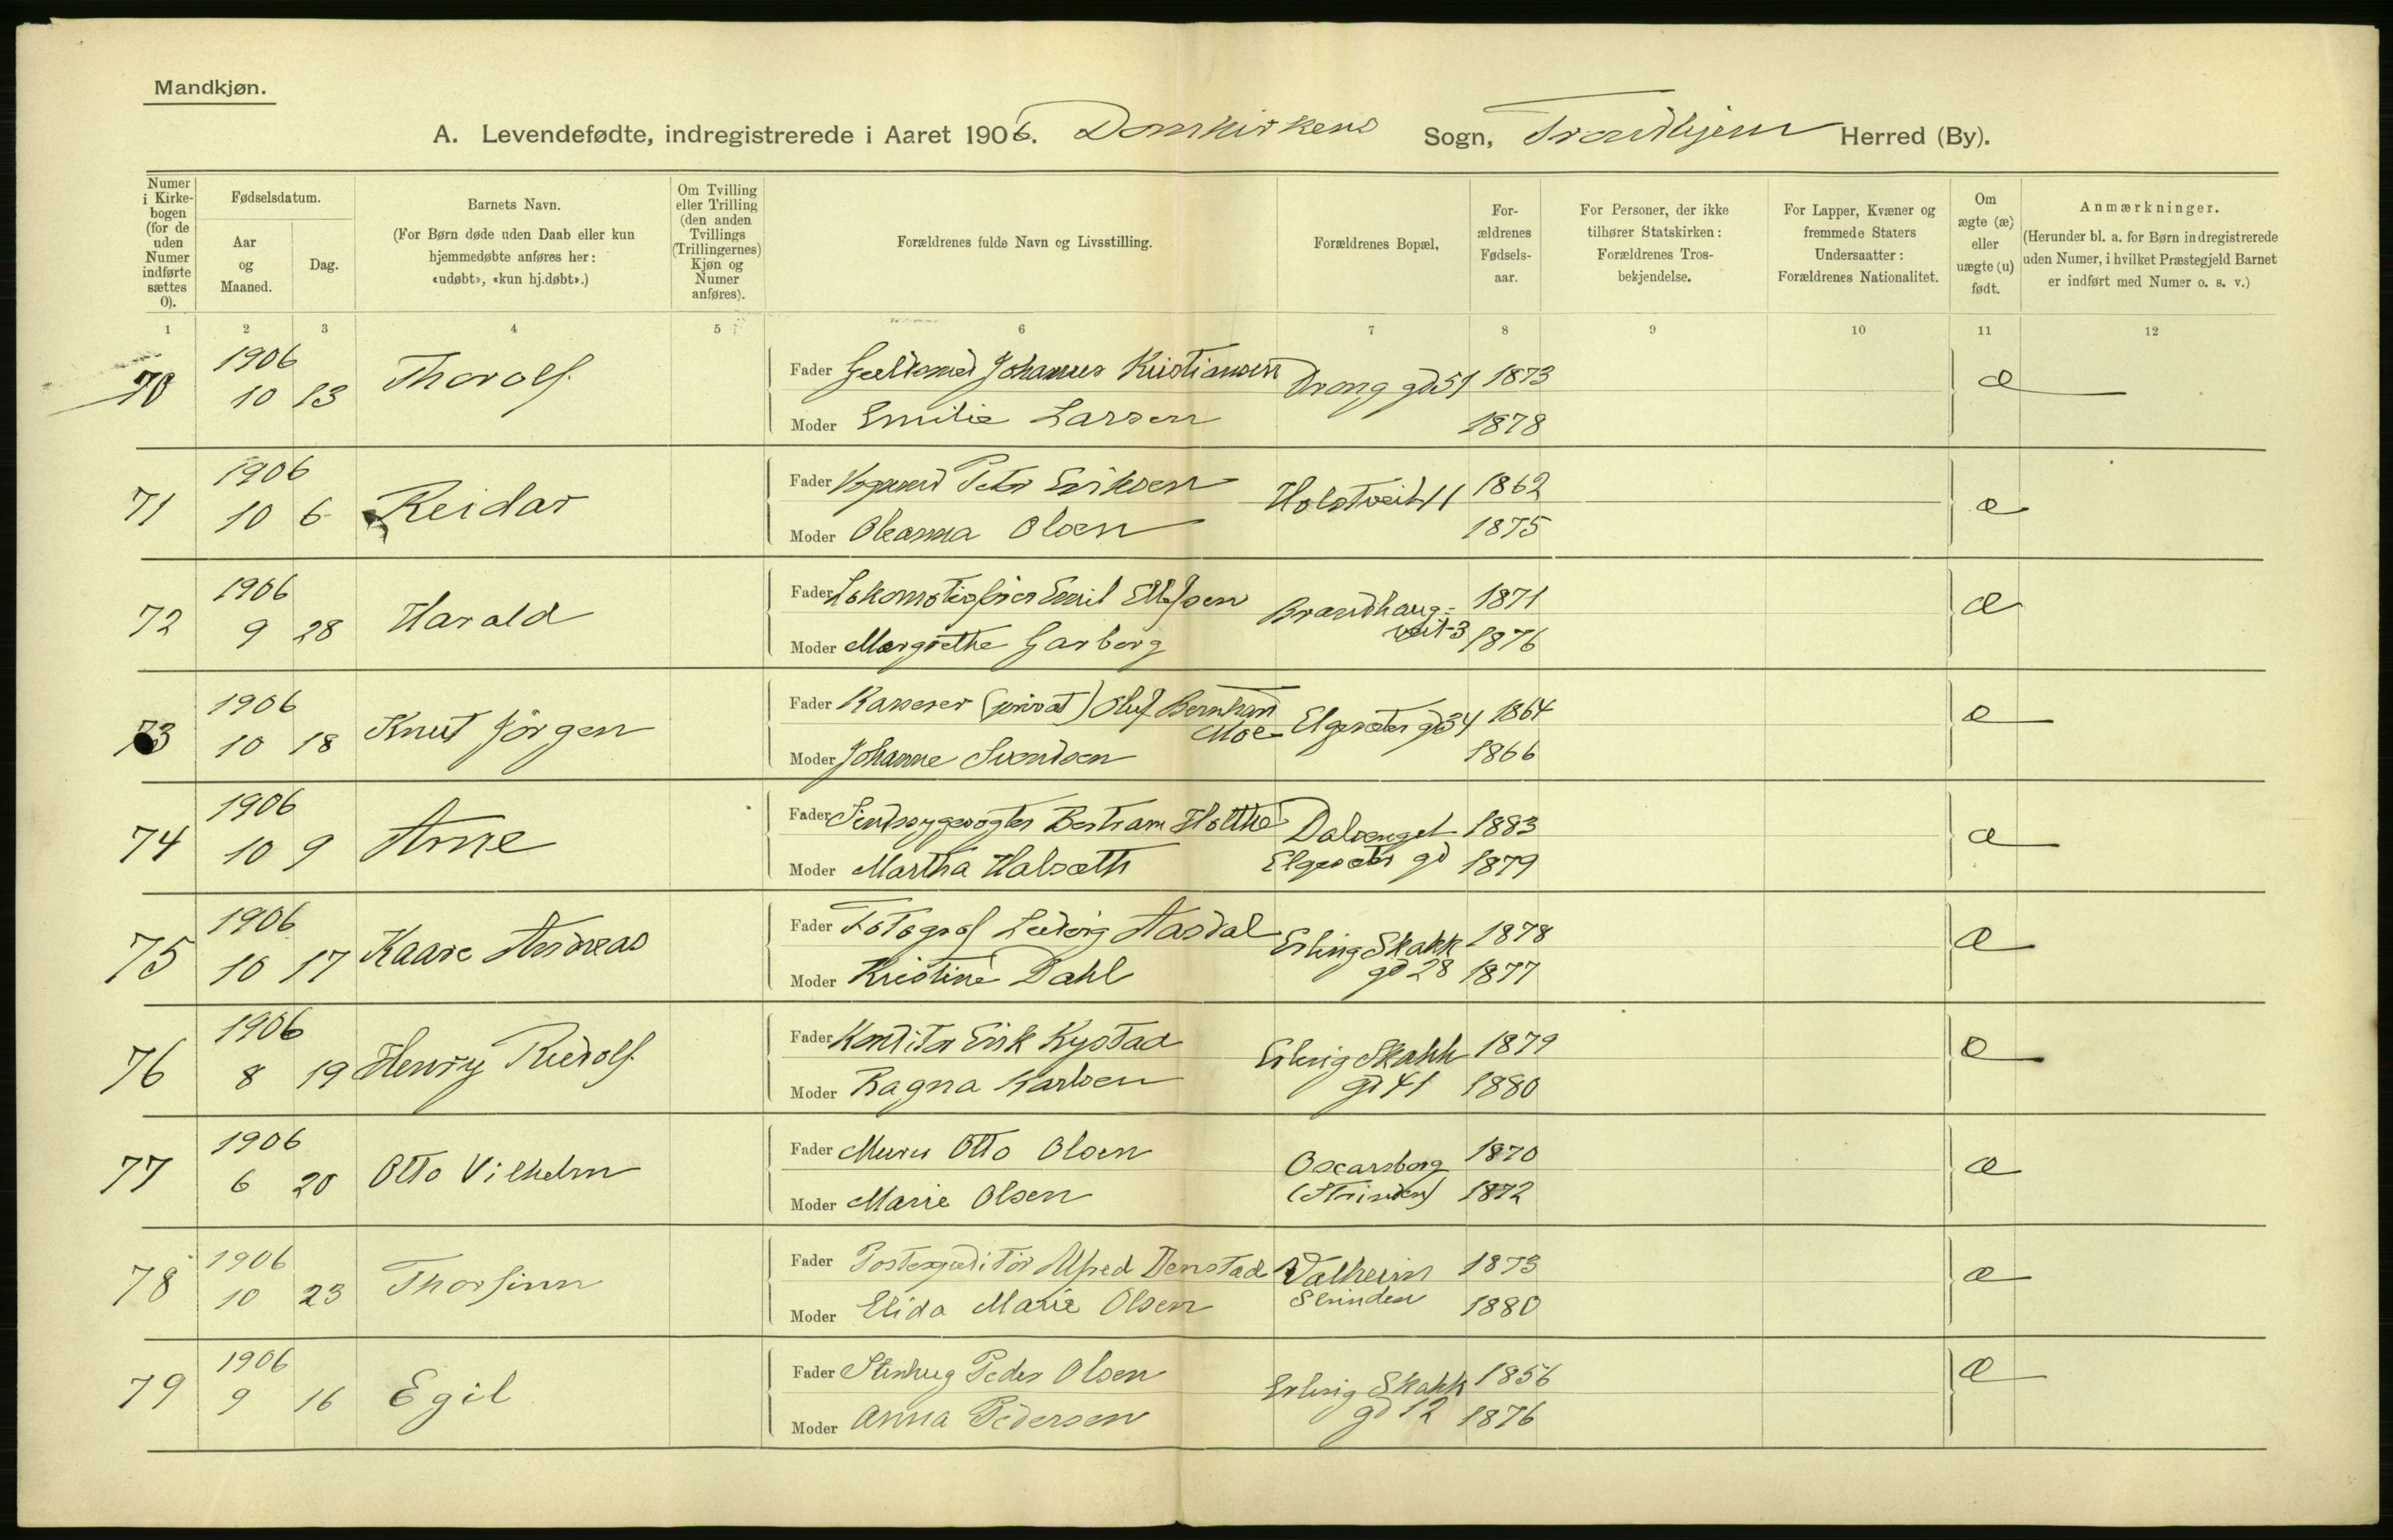 Mandkjøn.
A. Levendefødte, indregistrerede i Aaret 1906. Domkirkens Sogn, Trondhjem Herred (By).
Numer i Kirke-bogen (for de uden Numer indførte sættes 0).
Fødselsdatum.
Aar og Maaned.
Dag.
Barnets Navn.
(For Børn døde uden Daab eller kun hjemmedøbte anføres her: «udøbt», «kun hj.døbt».)
Om Tvilling eller Trilling (den anden Tvillings (Trillingernes) Kjøn og Numer anføres).
Forældrenes fulde Navn og Livsstilling.
Forældrenes Bopæl,
For-ældrenes Fødsels-aar.
For Personer, der ikke tilhører Statskirken: Forældrenes Tros-bekjendelse.
For Lapper, Kvæner og fremmede Staters Undersaatter: Forældrenes Nationalitet.
Om ægte (æ) eller uægte (u) født.
Anmærkninger.
(Herunder bl. a. for Børn indregistrerede uden Numer, i hvilket Præstegjeld Barnet er indført med Numer o. s. v.)
1 2 3 4 5 6 7 8 9 10 11 12
70 1906 10 13 Thorolf Fader Guldsmed Johannes Kristiansen Drong gd 51 1873 æ
Moder Emilie Larsen 1878
71 1906 10 6 Reidar Fader Peter Eriksen Holstveit 11 1862 æ
Moder Oleanna Olsen 1875
72 1906 9 28 Harald Fader Lokomotivfører Emil Ellefsen Brandhaug- 1871 æ
veit 3
Moder Margrethe Garberg 1876
73 1906 10 18 Knut Jörgen Fader Kasserer (privat) Oluf Bernhard
Moe Elgesæter gd 34 1864 æ
Moder Johanne Svendsen 1866
74 1906 10 9 Arne Fader Sindssygevogter Bertram Holthe Dalsenget 1883 æ
Moder Martha Halsæth Elgesæter gd 1879
75 1906 10 17 Kaare Andreas Fader Fotograf Ludvig Aasdal Erling Skakk 1878 æ
Moder Kristine Dahl gd 28 1877
76 1906 8 19 Henry Rudolf Fader Konditor Erik Kystad Erling Skakk 1879 æ
Moder Ragna Karlsen gd 41 1880
77 1906 6 20 Otto Vilhelm Fader Murer Otto Olsen Oscarsborg 1870 æ
Moder Marie Olsen (Strinden) 1872
78 1906 10 23 Thorfinn Fader Postexpeditör Alfred Denstad Valheim 1873 æ
Moder Elida Marie Olsen Strinden 1880
79 1906 9 16 Egil Fader Stenhug Peder Olsen Erling Skakk 1856 æ
Moder Anna Pedersen gd 12 1876